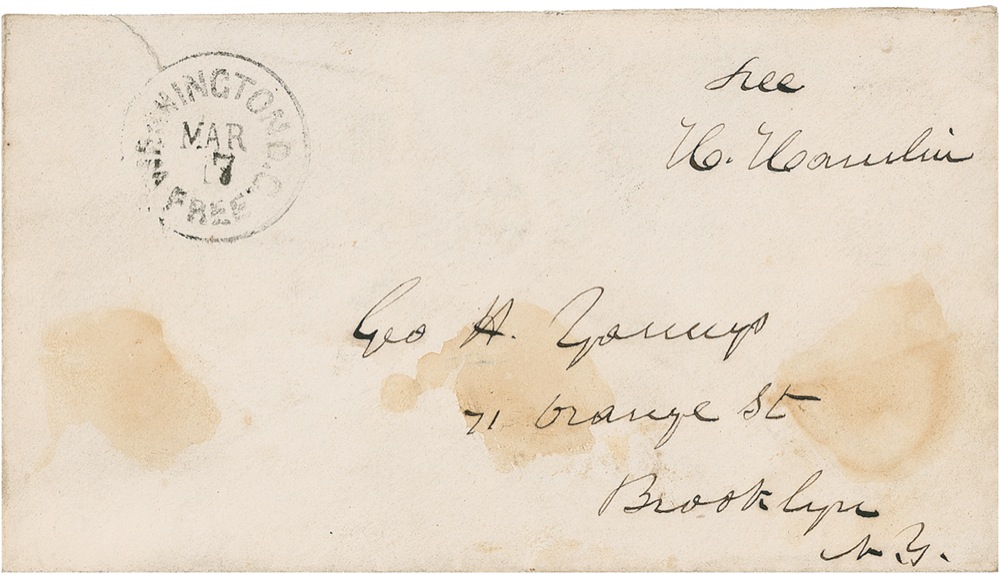 WASHINGTON D.C.
MAR
17
FREE
Free
H. Hamlin
Geo H. Youngs
71 Orange St
Brooklyn
N.Y.